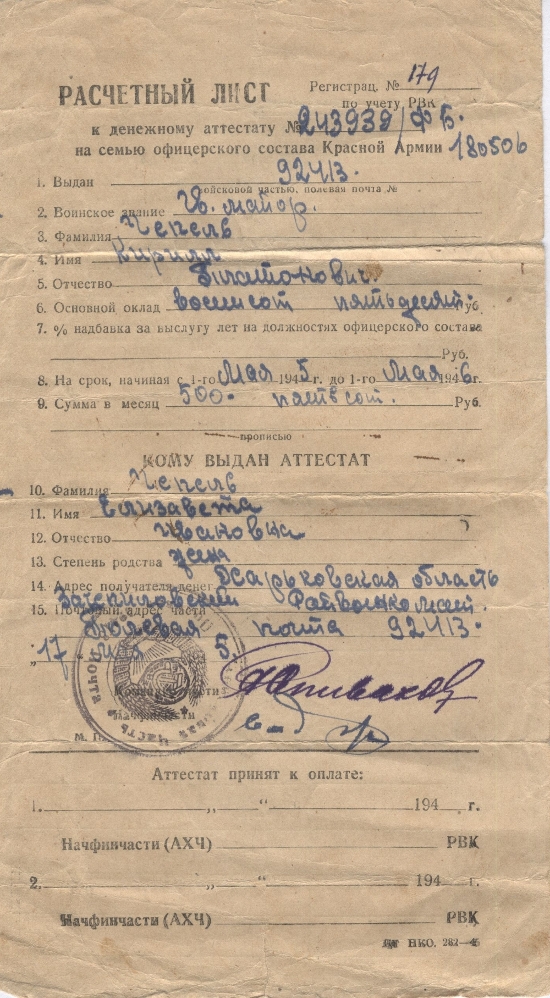 Регистрац. № 179
РАСЧЕТНЫЙ ЛИСТ
по учету РВК
к денежному аттестату № 243939/ФБ.
на семью офицерского состава Красной Армии 180506
1. Выдан 92413.
войсковой частью, полевая почта №
2. Воинское звание Гв. майор.
3. Фамилия Чепель
4. Имя Кирилл
5. Отчество Платонович.
6. Основной оклад восемсот пятьдесят. Руб.
7. % надбавка за выслугу лет на должностях офицерского состава
Руб.
8. На срок, начиная с 1-го Мая 1945 г. до 1-го Мая 1946 г.
9. Сумма в месяц 500. пятьсот. Руб.
прописью
КОМУ ВЫДАН АТТЕСТАТ
10. Фамилия Чепель
11. Имя Елизавета
12. Отчество Ивановна
13. Степень родства жена
14. Адрес получателя денег Харьковская область
15. Почтовый адрес части Райвоенкомат.
Полевая почта 92413.
17 мая 5
Начфинчасти
Почта
часть
М. П.
Аттестат принят к оплате:
1. „ “ 194 г.
Начфинчасти (АХЧ) РВК
2. „ “ 194 г.
Начфинчасти (АХЧ) РВК
НКО. 282—45